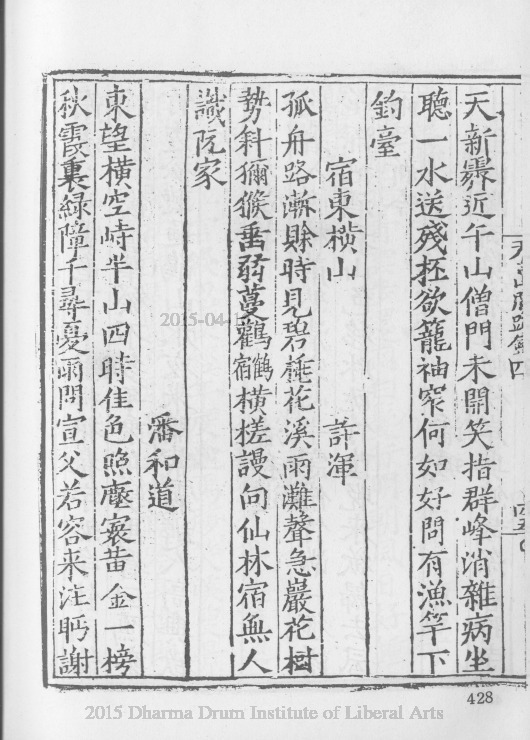 天新霽近午山僧門未開笑指群峰消雜病坐
聴一水送殘抔欲籠袖窄何如好問有漁竿下
釣臺
宿東橫山 許渾
孤舟路漸賖時見碧桃花溪雨灘聲急巖花樹
勢斜獼猴垂弱蔓鸂鶒宿橫槎謾向仙林宿無人
識阮家
潘和道
東望橫空峙半山四時佳色照塵寰黄金一榜
秋霞裏緑障千尋憂雨間宣父若容来注眄謝
428
2015-04-1
2015 Dharma Drum Institute of Liberal Arts